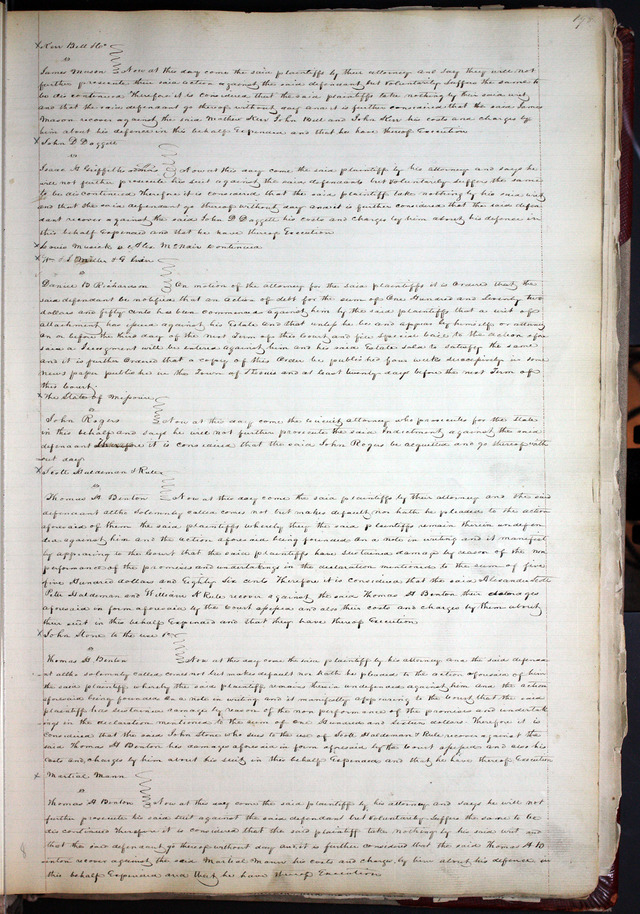 Kerr Bell &c
vs
James Mason Now at this day come the said plaintiffs by their attorney and say they will not
further prosecute their said action against the said defendant, but voluntarily suffers the same to
be discontinued Therefore it is considered that the said plaintiffs take nothing by their said writ
and that the said defendant go thereof without day and it is further considered that the said James
Mason recover against the said Mathew Kerr John Bell and John Kerr his costs and charges by
him about his defence in this behalf Expended and that he have thereof Execution
John D Daggett
vs
Isaac H Griffith Now at this day come the said plaintiff by his attorney and says he
will not further prosecute his suit against the said defendants but voluntarily suffers the same
to be discontinued Therefore it is considered that the said plaintiff take nothing by his said writ
and that the said defendant go thereof without day and it is further considered that the said defen
dant recover against the said John D Daggett his costs and charges by him about his defense in
this behalf Expended and that he have thereof Execution
Louis Musick vs McNair Continued
Wm & S Miller & G
vs
Daniel B Richardson On motion of the attorney for the said plaintiffs it is Ordered that the
said defendant be notified that an action of debt for the sum of One Hundred and Seventy two
dollars and fifty cents has been commenced against him by the said plaintiffs that a writ of
attachment has issued against his Estate and that unless he be and appear by himself or attorney
on or before the third day of the next Term of this Court and give special bail to the action afore
said a Judgment will be entered against him and his said Estate sold to satisfy the same
and it is further Ordered that a copy of this Order be published four weeks successively in some
news paper published in the Town of St Louis and at least twenty days before the next Term of
this Court
The State of Missouri
vs
John Rogers Now at this day come the circuit attorney who prosecutes for the State
in this behalf and says he will not further prosecute the said Indictment against the said
defendant Therefore it is considered that the said John Rogers be acquitted and go thereof with
out day
Scott Haldeman & Rule
vs
Thomas H Benton Now at this day come the said plaintiffs by their attorney and the said
defendant altho Solemnly called comes not but makes default nor hath he pleaded to the action
aforesaid of them the said plaintiffs whereby they the said plaintiffs remain therein undefen
ded against him and the action aforesaid being founded on a note in writing and it manifest
ly appearing to the Court that the said plaintiffs have sustained damage by reason of the non
performance of the promises and undertakings in the declaration mentioned to the sum of five
five Hundred dollars and Eighty Six cents Therefore it is considered that the said Alexander Scott
Peter Haldeman and William K Rule recover against the said Thomas H Benton their damages
aforesaid in form aforesaid by the Court assessed and also their costs and charges by them about
their suit in this behalf Expended and that they have thereof Execution
John Stone to the use &c
vs
Thomas H. Benton Now at this day come the said plaintiff by his attorney and the said defend
ant altho solemnly called comes not but makes default nor hath he pleaded to the action aforesaid of him
the said plaintiff whereby the said plaintiff remains therein undefended against him and the action
aforesaid being founded on a note in writing and it manifestly appearing to the court that the said
plaintiff has sustained damage by reason of the non performance of the promises and undertak
ings in the declaration mentioned to the sum of One Hundred and sixteen dollars Therefore it is
considered that the said John Stone who sues to the use of Scott Haldeman & Rule recover against the
said Thomas H Benton his damages aforesaid in form aforesaid by the court assessed and also his
costs and charges by him about his suit in this behalf Expended and that he have thereof Execution
Martial Mann
vs
Thomas H Benton Now at this day come the said plaintiff by his attorney and says he will not
further prosecute his said suit against the said defendant but voluntarily suffers the same to be
discontinued Therefore it is considered that the said plaintiff take nothing by his said writ and
that the said defendant go thereof without day and it is further considered that the said Thomas H B
enton recover against the said Martial Mann his costs and charges by him about his defense in
this behalf Expended and that he have thereof Execution